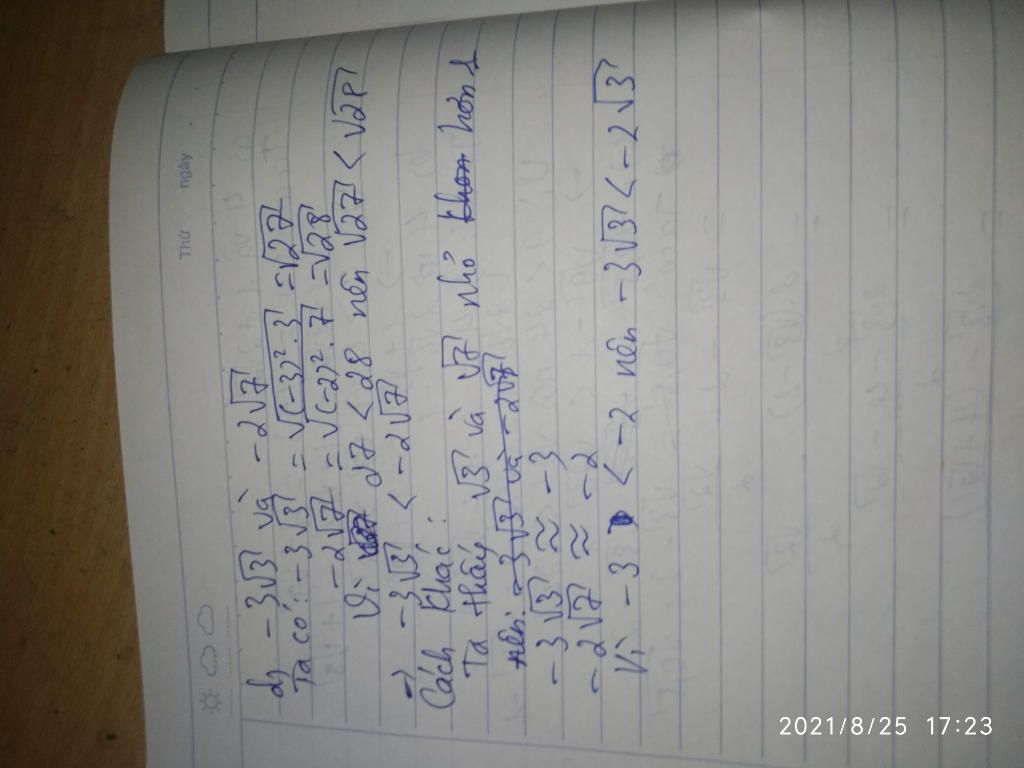 Thứ ngày
d, -3√3 và -2√7
Ta có: -3√3 = √(-3)².3 = √27
-2√7 = √(-2)².7 = √28
Vì 27 < 28 nên √27 < √28
=> -3√3 < -2√7
Cách khác:
Ta thấy √3 và √7 nhỏ hơn 1
nên -3√3 và -2√7
-3√3 ≈ -3
-2√7 ≈ -2
Vì -3 < -2 nên -3√3 < -2√3
2021/8/25 17:23